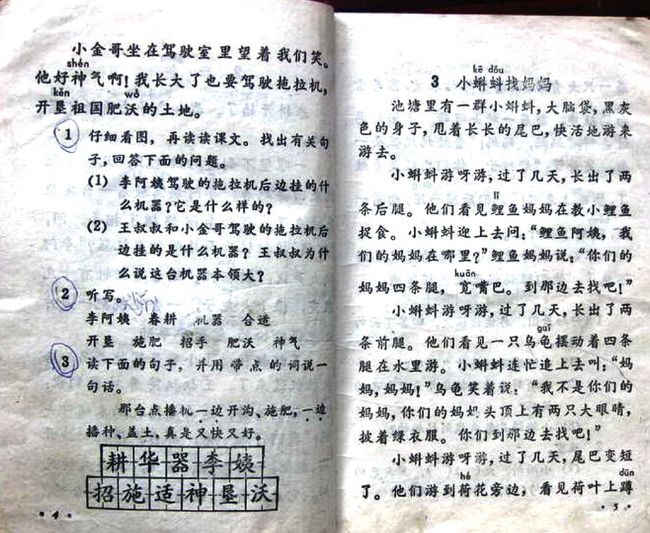 小金哥坐在驾驶室里望着我们笑。
shén
他好神气啊！我长大了也要驾驶拖拉机，
kěn wò
开垦祖国肥沃的土地。
1 仔细看图，再读读课文。找出有关句
子，回答下面的问题。
(1) 李阿姨驾驶的拖拉机后边挂的什
么机器？它是什么样的？
(2) 王叔叔和小金哥驾驶的拖拉机后
边挂的是什么机器？王叔叔为什
么说这台机器本领大？
2 听写。
李阿姨 春耕 机器 合适
开垦 施肥 招手 肥沃 神气
3 读下面的句子，并用带点的词说一
句话。
那台点播机一边开沟、施肥，一边
播种、盖土，真是又快又好。
耕华器李姨
招施适神垦沃
·4·
kē dǒu
3 小蝌蚪找妈妈
池塘里有一群小蝌蚪，大脑袋，黑灰
色的身子，甩着长长的尾巴，快活地游来
游去。
小蝌蚪游呀游，过了几天，长出了两
lǐ
条后腿。他们看见鲤鱼妈妈在教小鲤鱼
捉食。小蝌蚪迎上去问：“鲤鱼阿姨，我
们的妈妈在哪里？”鲤鱼妈妈说：“你们的
kuān
妈妈四条腿，宽嘴巴。到那边去找吧！”
小蝌蚪游呀游，过了几天，长出了两
guī
条前腿。他们看见一只乌龟摆动着四条
腿在水里游。小蝌蚪连忙追上去叫：“妈
妈，妈妈！”乌龟笑着说：“我不是你们的
妈妈，你们的妈妈头顶上有两只大眼睛，
披着绿衣服。你们到那边去找吧！”
小蝌蚪游呀游，过了几天，尾巴变短
hé dūn
了。他们游到荷花旁边，看见荷叶上蹲
·5·